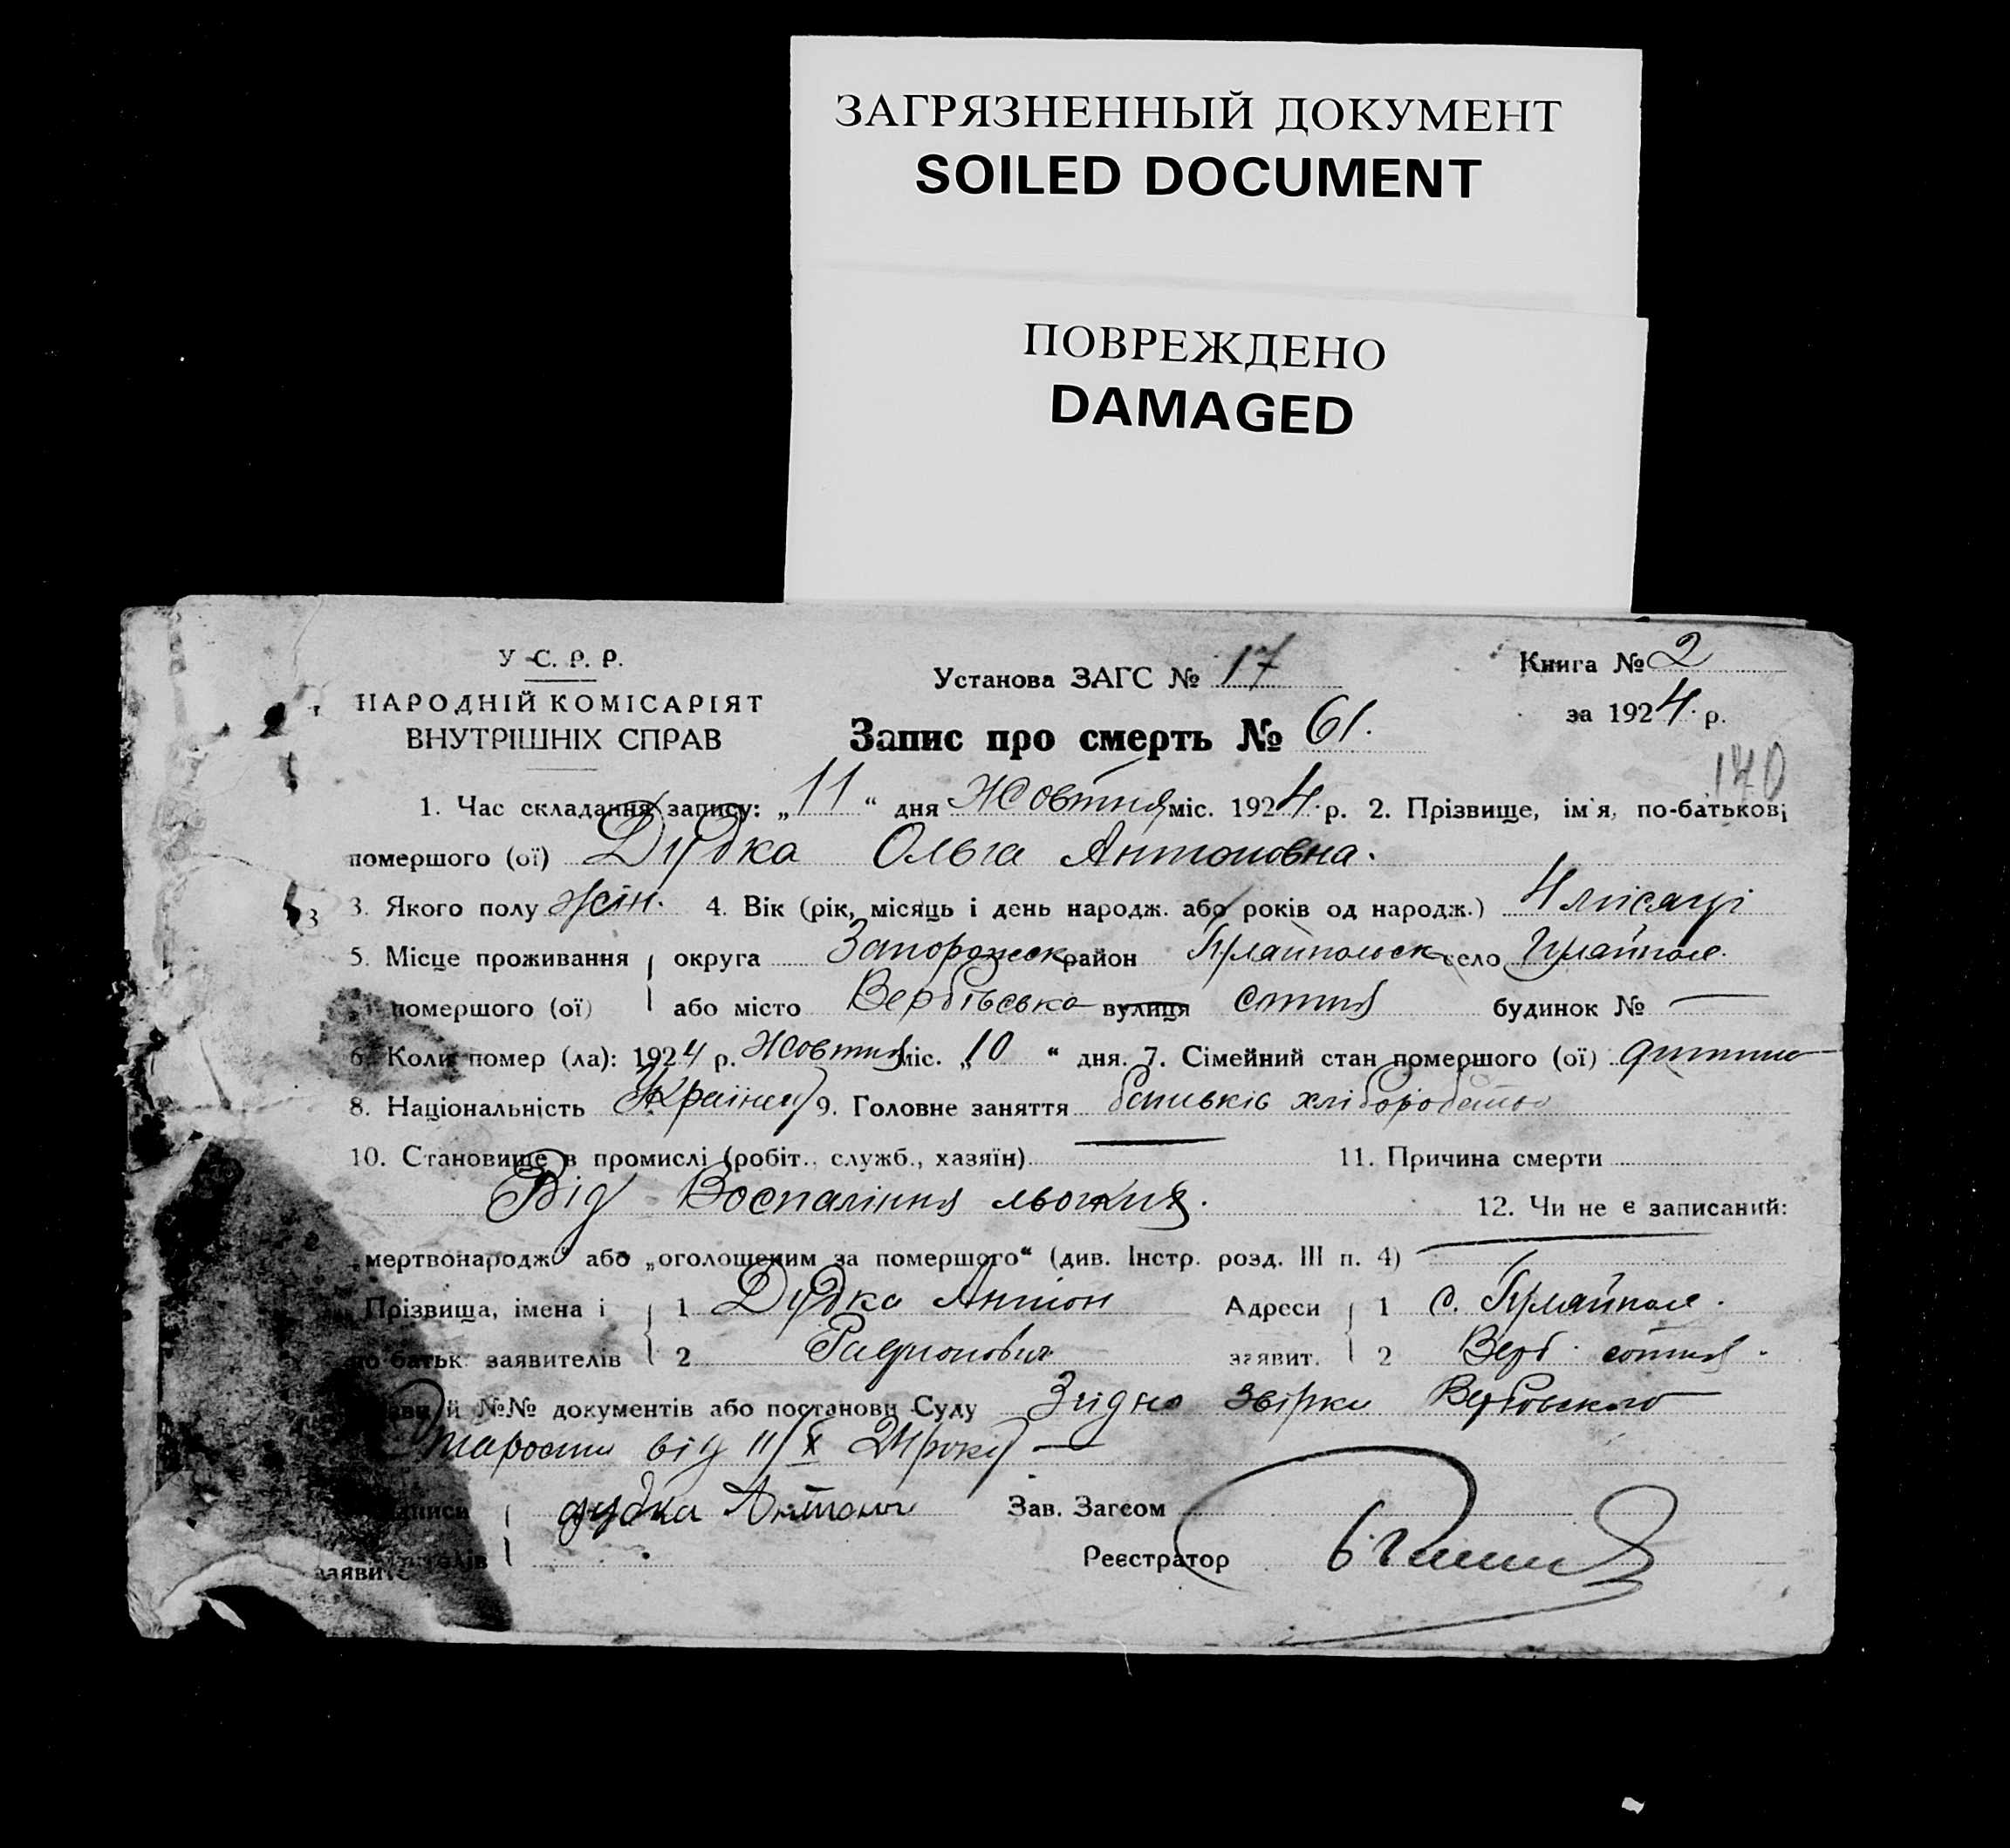 ЗАГРЯЗНЕННЫЙ ДОКУМЕНТ
SOILED DOCUMENT
ПОВРЕЖДЕНО
DAMAGED
У С. Р. Р.
НАРОДНІЙ КОМІСАРІЯТ
ВНУТРІШНІХ СПРАВ
Установа ЗАГС № 17
Запис про смерть № 61.
Книга № 2
за 1924 р.
140
1. Час складання запису: „11“ дня Жовтня міс. 1924 р. 2. Прізвище, ім'я, по-батькові
помершого (ої) Дудка Ольга Антоновна.
3. Якого полу жін. 4. Вік (рік, місяць і день народж. або років од народж.) 4 місяці
5. Місце проживання округа Запорожск район Гуляйпольск село Гуляйполе.
помершого (ої) або місто Вербівська вулиця сотня будинок № —
6. Коли помер (ла): 1924 р. Жовтня міс. „10“ дня. 7. Сімейний стан помершого (ої) дитина
8. Національність Українец 9. Головне заняття батьків хлібороб
10. Становище в промислі (робіт., служб., хазяїн) — 11. Причина смерти
Від Воспаління льогких. 12. Чи не є записаний:
„мертвонародж“ або „оголошеним за помершого“ (див. Інстр. розд. III п. 4) —
Прізвища, імена і 1 Дудка Антон Адреси 1 с. Гуляйполе.
по батьк. заявителів 2 Радионович заявит. 2 Верб. сотня.
й №№ документів або постанови Суду Згідно звірки Вербовского
Старости від 11/X 24 року —
дписи дудка Антон Зав. Загсом
заявителів Реєстратор